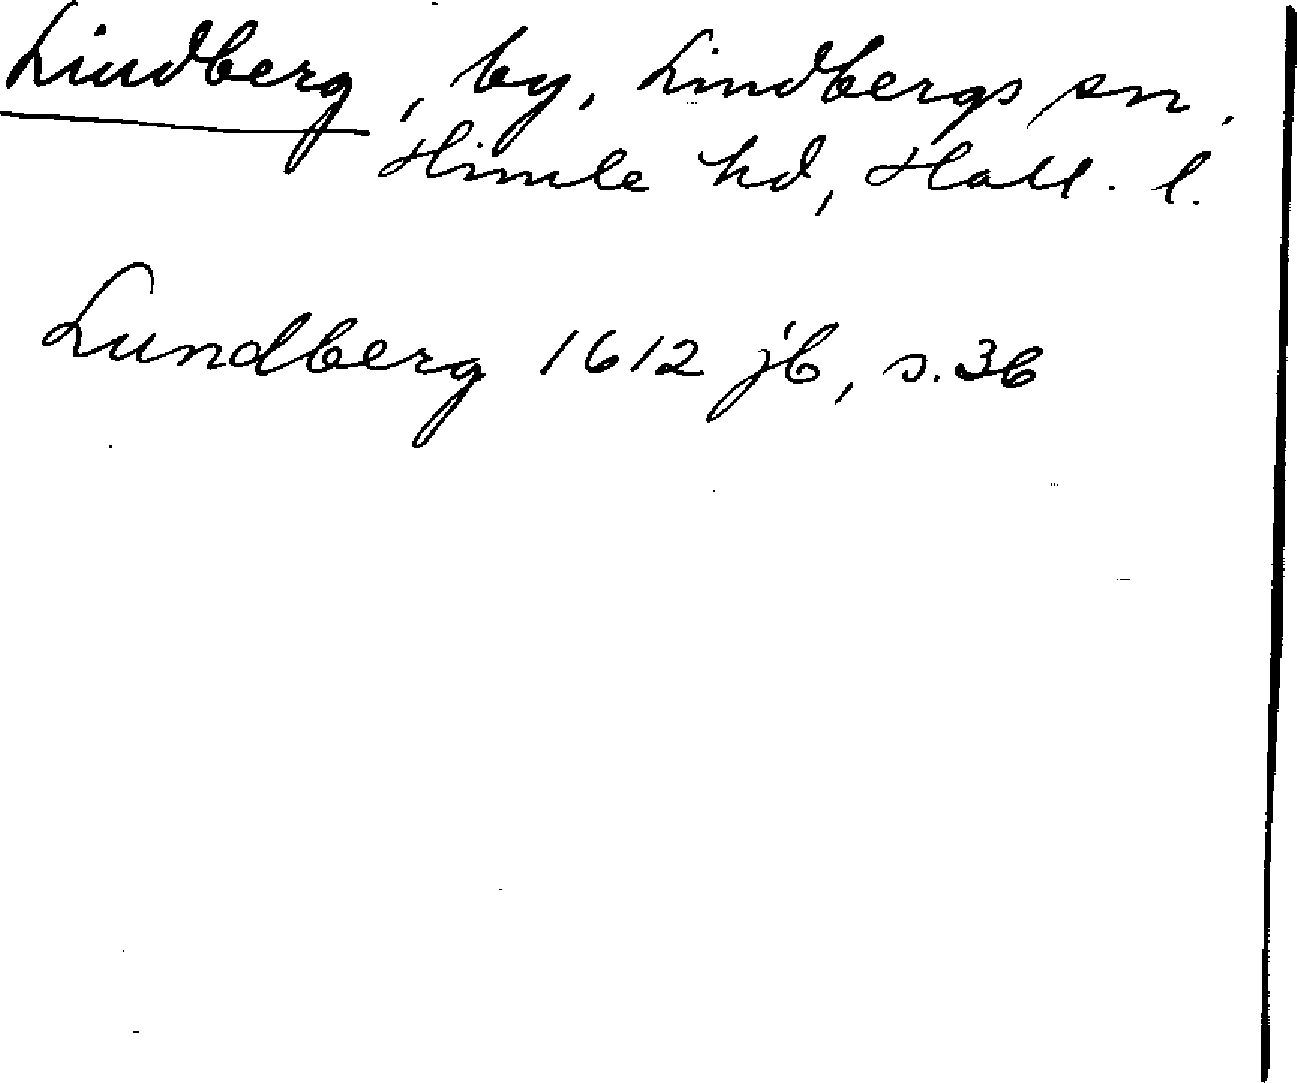 Lindberg, by, Lindbergs sn,
Himle hd, Hall. l.
Lundberg 1612 jb, s. 36